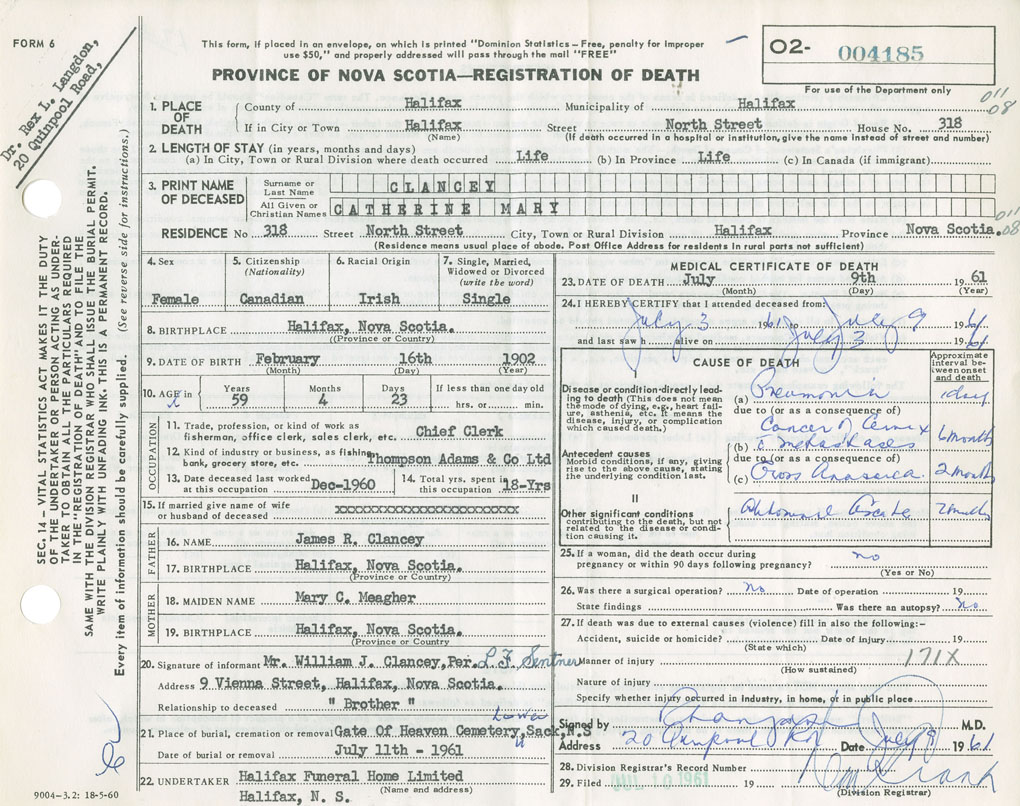 FORM 6
Dr. Rex L. Langdon,
20 Quinpool Road,
This form, if placed in an envelope, on which is printed "Dominion Statistics – Free, penalty for improper
use $50," and properly addressed will pass through the mail "FREE"
PROVINCE OF NOVA SCOTIA—REGISTRATION OF DEATH
O2- 004185
For use of the Department only
011
08
1. PLACE OF DEATH
County of Halifax Municipality of Halifax
If in City or Town Halifax Street North Street House No. 318
(Name) (If death occurred in a hospital or institution, give the name instead of street and number)
2. LENGTH OF STAY (in years, months and days)
(a) In City, Town or Rural Division where death occurred Life (b) In Province Life (c) In Canada (if immigrant)
3. PRINT NAME OF DECEASED
Surname or Last Name CLANCEY
All Given or Christian Names CATHERINE MARY
011
08
RESIDENCE No 318 Street North Street City, Town or Rural Division Halifax Province Nova Scotia.
(Residence means usual place of abode. Post Office Address for residents in rural parts not sufficient)
SEC. 14 – VITAL STATISTICS ACT MAKES IT THE DUTY
OF THE UNDERTAKER OR PERSON ACTING AS UNDER-
TAKER TO OBTAIN ALL THE PARTICULARS REQUIRED
IN THE "REGISTRATION OF DEATH" AND TO FILE THE
SAME WITH THE DIVISION REGISTRAR WHO SHALL ISSUE THE BURIAL PERMIT.
WRITE PLAINLY WITH UNFADING INK. THIS IS A PERMANENT RECORD.
Every item of information should be carefully supplied. (See reverse side for instructions.)
4. Sex
Female
5. Citizenship
(Nationality)
Canadian
6. Racial Origin
Irish
7. Single, Married,
Widowed or Divorced
(write the word)
Single
8. BIRTHPLACE Halifax, Nova Scotia.
(Province or Country)
9. DATE OF BIRTH February 16th 1902
(Month) (Day) (Year)
10. AGE in
Years Months Days If less than one day old
59 4 23 hrs. or min.
OCCUPATION
11. Trade, profession, or kind of work as
fisherman, office clerk, sales clerk, etc. Chief Clerk
12. Kind of industry or business, as fishing,
bank, grocery store, etc. Thompson Adams & Co Ltd
13. Date deceased last worked
at this occupation Dec-1960
14. Total yrs. spent in
this occupation 18-Yrs
15. If married give name of wife
or husband of deceased xxxxxxxxxxxxxxxxxxxxxxxx
FATHER
16. NAME James R. Clancey
17. BIRTHPLACE Halifax, Nova Scotia.
(Province or Country)
MOTHER
18. MAIDEN NAME Mary C. Meagher
19. BIRTHPLACE Halifax, Nova Scotia.
(Province or Country
20. Signature of informant Mr. William J. Clancey, Per. L.F. Sentner
Address 9 Vienna Street, Halifax, Nova Scotia.
Relationship to deceased " Brother "
Lower
21. Place of burial, cremation or removal Gate Of Heaven Cemetery, Sack, N.S
Date of burial or removal July 11th - 1961
22. UNDERTAKER Halifax Funeral Home Limited
(Name and address)
Halifax, N. S.
9004-3.2: 18-5-60
MEDICAL CERTIFICATE OF DEATH
23. DATE OF DEATH July 9th 1961
(Month) (Day) (Year)
24. I HEREBY CERTIFY that I attended deceased from:
July 3 1961 to July 9 1961
and last saw h alive on July 3 1961
CAUSE OF DEATH
Approximate
interval between
onset
and death
I
Disease or condition directly lead-
ing to death (This does not mean
the mode of dying, e.g., heart fail-
ure, asthenia, etc. It means the
disease, injury, or complication
which caused death.)
(a) Pneumonia 1 day
due to (or as a consequence of)
Antecedent causes
Morbid conditions, if any, giving
rise to the above cause, stating
the underlying condition last.
Cancer of Cervix 6 months
(b) c metastases
due to (or as a consequence of)
(c) Gross Anasarca 2 months
II
Other significant conditions
contributing to the death, but not
related to the disease or condi-
tion causing it.
Abdominal 2 months
25. If a woman, did the death occur during
pregnancy or within 90 days following pregnancy? no
(Yes or No)
26. Was there a surgical operation? no Date of operation 19
State findings Was there an autopsy? no
27. If death was due to external causes (violence) fill in also the following:–
Accident, suicide or homicide? Date of injury 19
(State which)
Manner of injury 171X
(How sustained)
Nature of injury
Specify whether injury occurred in industry, in home, or in public place
Signed by M.D.
Address 20 Quinpool Rd Date July 9 1961
28. Division Registrar's Record Number
29. Filed JUL 10 1961 19
(Division Registrar)